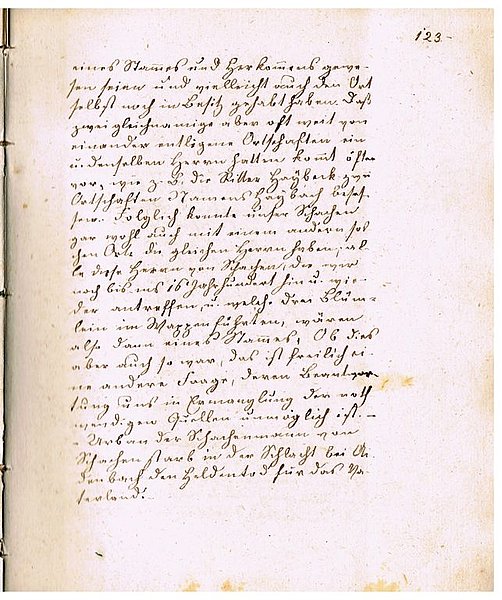 123.
eines Stammes und Herkommens gewe-
sen seien und vielleicht auch den Ort
selbst noch in Besitz gehabt haben. Daß
zwei gleichnamige aber oft weit von
einander entlegene Ortschaften ein
u. denselben Herrn hatten komt öfter
vor, wie z. B. die Ritter Haybeck zwei
Ortschaften Namens Haybach beses-
sen. Folglich konnte unser Schachen
gar wohl auch mit einem andern sol
chen Orte die gleichen Herrn haben, al-
le diese Herrn von Schachen, die wir
noch bis ins 16 Jahrhundert hin u. wie-
der antreffen, u. welche drei Blüm-
lein im Wappen führten, wären
also dann eines Stammes. Ob dies
aber auch so war, das ist freilich ei-
ne andere Frage, deren Beantwor-
tung uns in Ermanglung der noth
wendigen Quellen unmöglich ist. –
- Urban der Schachenmann von
Schachen starb in der Schlacht bei
denbach den Heldentod für das Va-
terland.